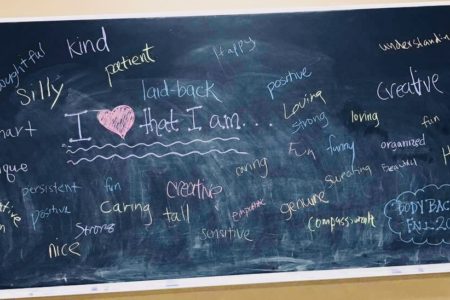 kind
patient
Happy
understanding
Silly
laid-back
positive
creative
I ❤ that I am...
Loving
strong
loving
fun
Fun
funny
organized
caring
persistent
fun
creative
positive
Caring
tall
genuine
Strong
sensitive
compassionate
nice
BODY BAC
FALL 20